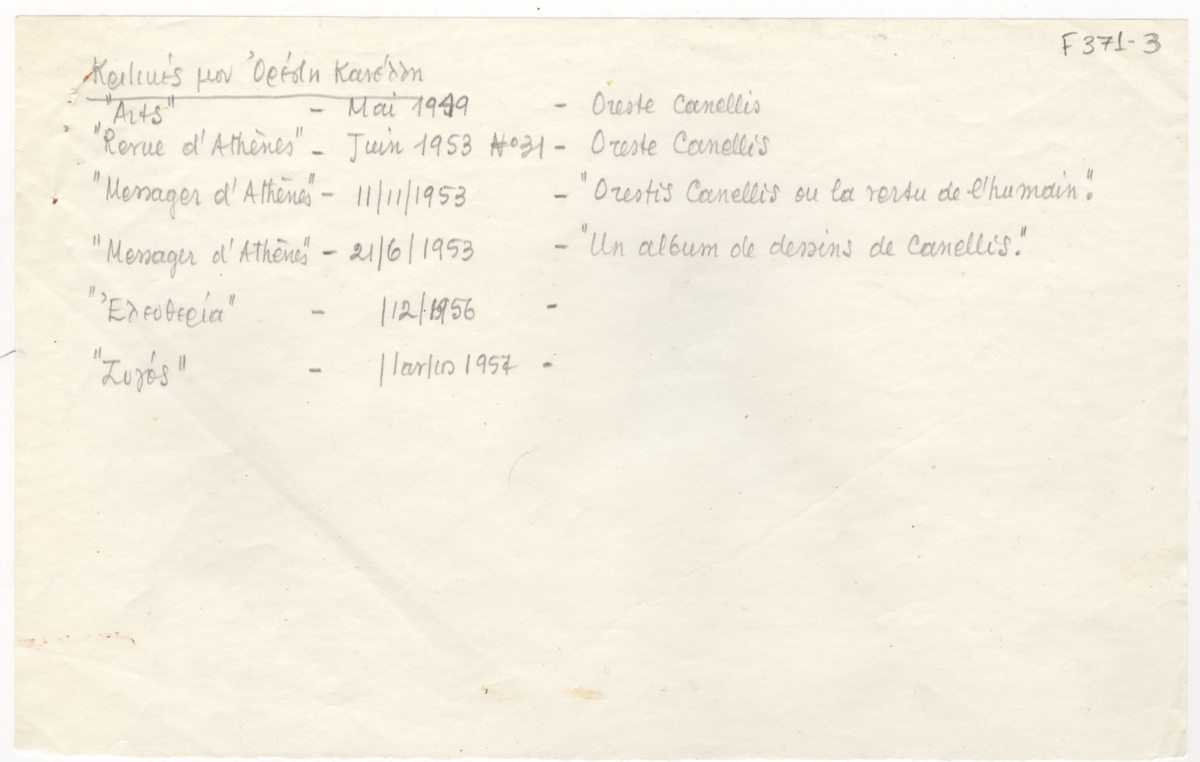 F371-3
Κριτικές μου Ὀρέστη Κανέλλη
"Arts" - Mai 1949 - Oreste Canellis
"Revue d'Athènes" - Juin 1953 No 31 - Oreste Canellis
"Messager d'Athènes" - 11/11/1953 - "Orestis Canellis ou la vertu de l'humain".
"Messager d'Athènes" - 21/6/1953 - "Un album de dessins de Canellis."
"Ἐλευθερία" - /12/1956 -
"Ζυγός" - 1957 -